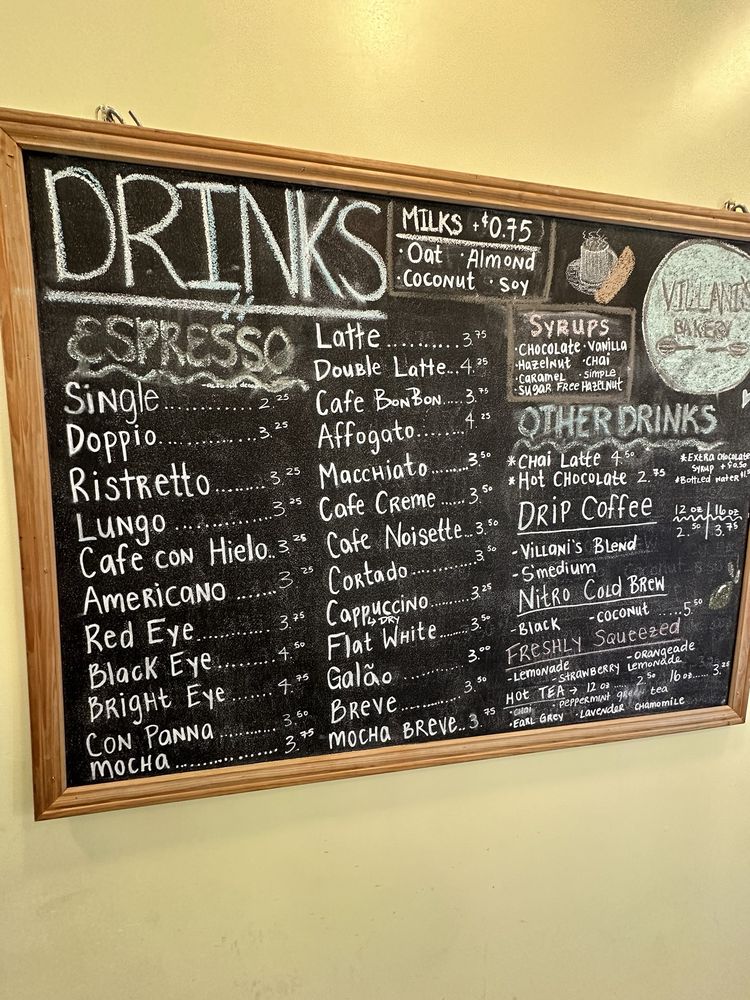 DRINKS
MILKS +$0.75
·Oat ·Almond
·Coconut ·Soy
VILLANI'S
BAKERY
ESPRESSO
Single............2.25
Doppio............3.25
Ristretto........3.25
Lungo............3.25
Cafe con Hielo..3.25
Americano........3.25
Red Eye..........3.75
Black Eye........4.50
Bright Eye.......4.75
Con Panna........3.50
Mocha............3.75
Latte............3.75
Double Latte..4.25
Cafe BonBon....3.75
Affogato.......4.25
Macchiato......3.50
Cafe Creme.....3.50
Cafe Noisette..3.50
Cortado........3.50
Cappuccino.....3.25
↳DRY
Flat White.....3.50
Galão..........3.00
Breve..........3.50
Mocha Breve..3.75
SYRUPS
·Chocolate ·Vanilla
·Hazelnut ·Chai
·Caramel ·Simple
·Sugar Free Hazelnut
OTHER DRINKS
*Chai Latte 4.50
*Hot Chocolate 2.75
*Extra Chocolate
Syrup +$0.50
*Bottled Water
Drip Coffee
12 oz | 16 oz
2.50 | 3.75
-Villani's Blend
-Smedium
Nitro Cold Brew
-Black -coconut .....5.50
Freshly Squeezed
-Lemonade -Orangeade
-Strawberry Lemonade
Hot Tea → 12 oz .... 2.50 16 oz .... 3.25
·Chai ·Peppermint green tea
·Earl Grey ·Lavender Chamomile